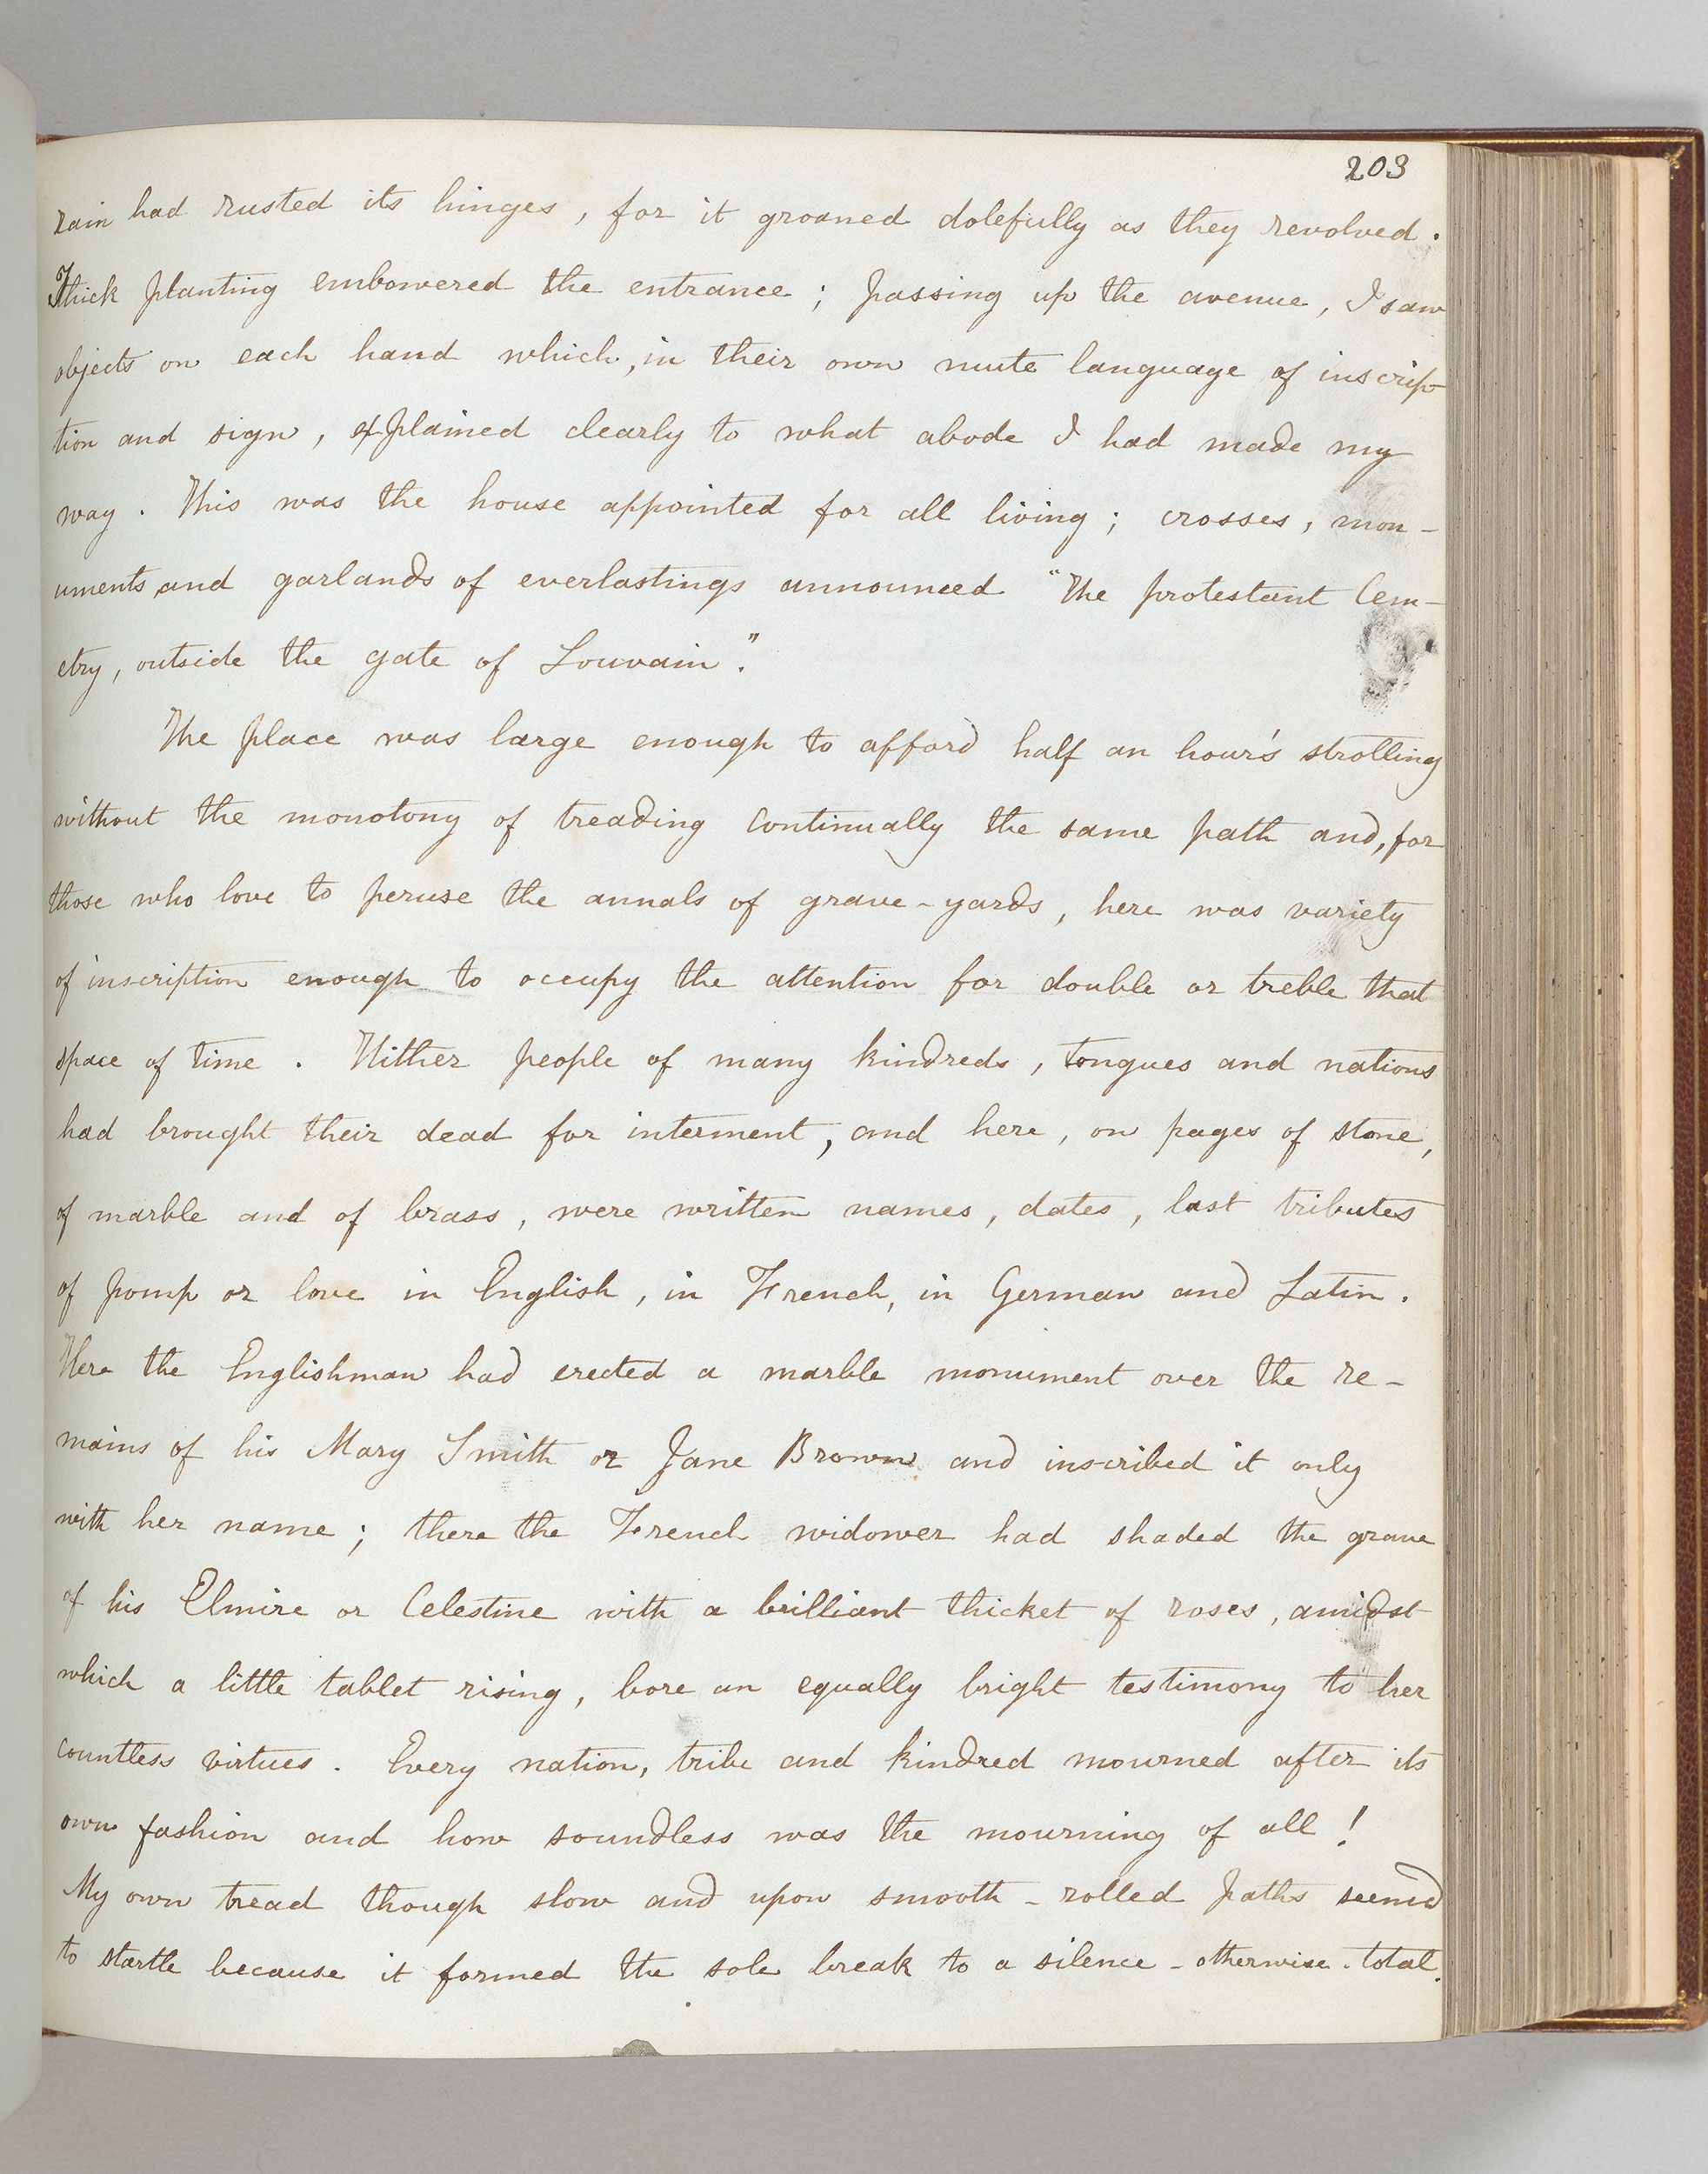 203
rain had rusted its hinges, for it groaned dolefully as they revolved.
Thick planting embowered the entrance; passing up the avenue, I saw
objects on each hand which, in their own mute language of inscrip-
tion and sign, explained clearly to what abode I had made my
way. This was the house appointed for all living; crosses, mon-
uments and garlands of everlastings announced "The Protestant Cem-
etry, outside the gate of Louvain."
The place was large enough to afford half an hour's strolling
without the monotony of treading continually the same path and, for
those who love to peruse the annals of grave-yards, here was variety
of inscription enough to occupy the attention for double or treble that
space of time. Hither people of many kindreds, tongues and nations
had brought their dead for interment, and here, on pages of stone,
of marble and of brass, were written names, dates, last tributes
of pomp or love in English, in French, in German and Latin.
Here the Englishman had erected a marble monument over the re-
mains of his Mary Smith or Jane Brown and inscribed it only
with her name; there the French widower had shaded the grave
of his Elmire or Celestine with a brilliant thicket of roses, amidst
which a little tablet rising, bore an equally bright testimony to her
countless virtues. Every nation, tribe and kindred mourned after its
own fashion and how soundless was the mourning of all!
My own tread though slow and upon smooth-rolled paths seemed
to startle because it formed the sole break to a silence-otherwise-total.